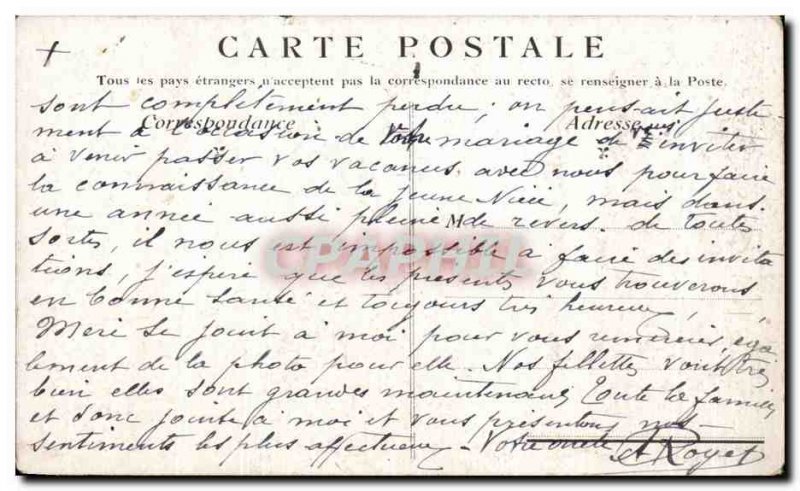 CARTE POSTALE
Tous les pays étrangers n'acceptent pas la correspondance au recto, se renseigner à la Poste.
Correspondance
Adresse
M
sont complètement perdu, on pensait juste-
ment à l'occasion de votre mariage de inviter
à venir passer vos vacances avec nous pour faire
la connaissance de la jeune Nièce, mais dans
une année aussi pleine de revers de toutes
sortes, il nous est impossible à faire des invita
tions, j'espère que les présents vous trouverons
en bonne santé et toujours très heureux,
Mère se jouit à moi pour vous remercier, éga
lement de la photo pour elle. Nos fillettes vont très
bien elles sont grandes maintenant, toute la famille
et donc jointe à moi et vous présentons nos
sentiments les plus affectueux - Votre oncle
A Royet
CPAPHIL